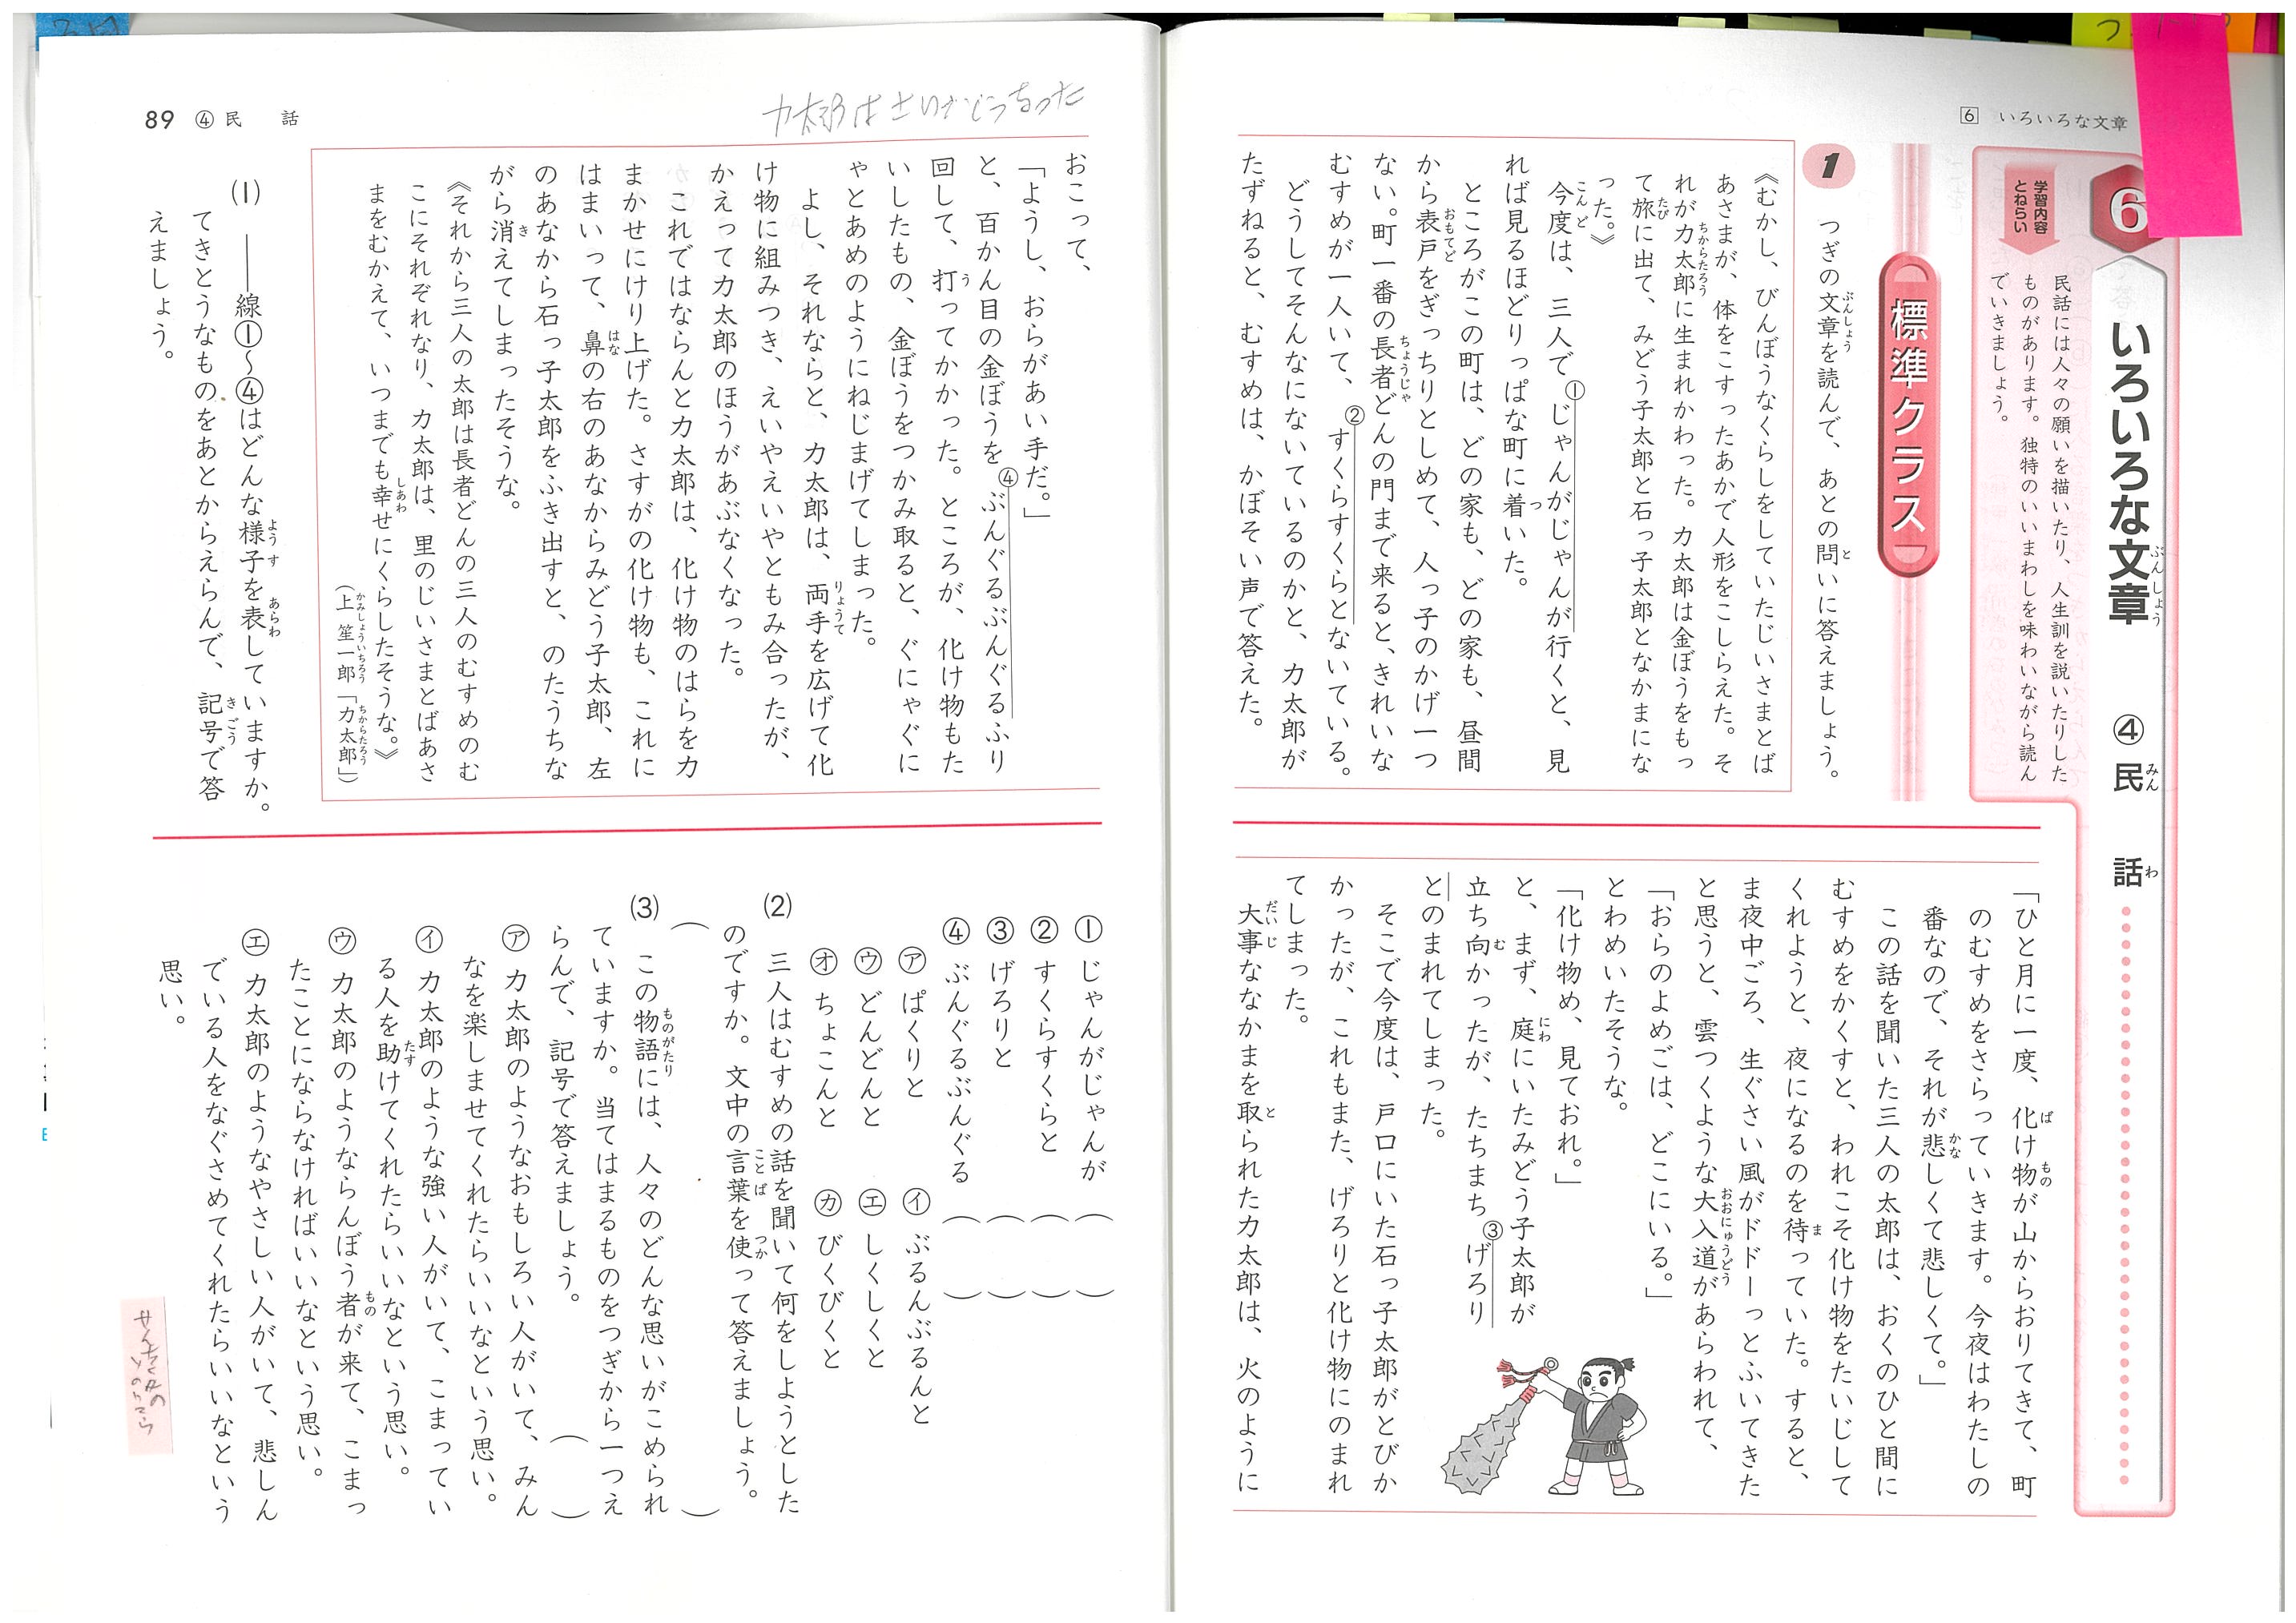 6 いろいろな文章
6 いろいろな文章 ④ 民話
学習内容とねらい
民話には人々の願いを描いたり、人生訓を説いたりした
ものがあります。独特のいいまわしを味わいながら読ん
でいきましょう。
標準クラス
1 つぎの文章を読んで、あとの問いに答えましょう。
《むかし、びんぼうなくらしをしていたじいさまとば
あさまが、体をこすったあかで人形をこしらえた。そ
れが力太郎に生まれかわった。力太郎は金ぼうをもっ
て旅に出て、みどう子太郎と石っ子太郎となかまにな
った。》
今度は、三人で①じゃんがじゃんが行くと、見
れば見るほどりっぱな町に着いた。
ところがこの町は、どの家も、どの家も、昼間
から表戸をぎっちりとしめて、人っ子のかげ一つ
ない。町一番の長者どんの門まで来ると、きれいな
むすめが一人いて、②すくらすくらとないている。
どうしてそんなにないているのかと、力太郎が
たずねると、むすめは、かぼそい声で答えた。
「ひと月に一度、化け物が山からおりてきて、町
のむすめをさらっていきます。今夜はわたしの
番なので、それが悲しくて悲しくて。」
この話を聞いた三人の太郎は、おくのひと間に
むすめをかくすと、われこそ化け物をたいじして
くれようと、夜になるのを待っていた。すると、
ま夜中ごろ、生ぐさい風がドドーっとふいてきた
と思うと、雲つくような大入道があらわれて、
「おらのよめごは、どこにいる。」
とわめいたそうな。
「化け物め、見ておれ。」
と、まず、庭にいたみどう子太郎が
立ち向かったが、たちまち③げろり
とのまれてしまった。
そこで今度は、戸口にいた石っ子太郎がとびか
かったが、これもまた、げろりと化け物にのまれ
てしまった。
大事ななかまを取られた力太郎は、火のように
力太郎はさいごどうなった
89 ④ 民話
おこって、
「ようし、おらがあい手だ。」
と、百かん目の金ぼうを④ぶんぐるぶんぐるふり
回して、打ってかかった。ところが、化け物もた
いしたもの、金ぼうをつかみ取ると、ぐにゃぐに
ゃとあめのようにねじまげてしまった。
よし、それならと、力太郎は、両手を広げて化
け物に組みつき、えいやえいやともみ合ったが、
かえって力太郎のほうがあぶなくなった。
これではならんと力太郎は、化け物のはらを力
まかせにけり上げた。さすがの化け物も、これに
はまいって、鼻の右のあなからみどう子太郎、左
のあなから石っ子太郎をふき出すと、のたうちな
がら消えてしまったそうな。
《それから三人の太郎は長者どんの三人のむすめのむ
こにそれぞれなり、力太郎は、里のじいさまとばあさ
まをむかえて、いつまでも幸せにくらしたそうな。》
（上 笙一郎「力太郎」）
(1) ――線①～④はどんな様子を表していますか。
てきとうなものをあとからえらんで、記号で答
えましょう。
① じゃんがじゃんが （ ）
② すくらすくらと （ ）
③ げろりと （ ）
④ ぶんぐるぶんぐる （ ）
㋐ ぱくりと ㋑ ぶるんぶるんと
㋒ どんどんと ㋓ しくしくと
㋔ ちょこんと ㋕ びくびくと
(2) 三人はむすめの話を聞いて何をしようとした
のですか。文中の言葉を使って答えましょう。
（ ）
(3) この物語には、人々のどんな思いがこめられ
ていますか。当てはまるものをつぎから一つえ
らんで、記号で答えましょう。 （ ）
㋐ 力太郎のようなおもしろい人がいて、みん
なを楽しませてくれたらいいなという思い。
㋑ 力太郎のような強い人がいて、こまってい
る人を助けてくれたらいいなという思い。
㋒ 力太郎のようならんぼう者が来て、こまっ
たことにならなければいいなという思い。
㋓ 力太郎のようなやさしい人がいて、悲しん
でいる人をなぐさめてくれたらいいなという
思い。